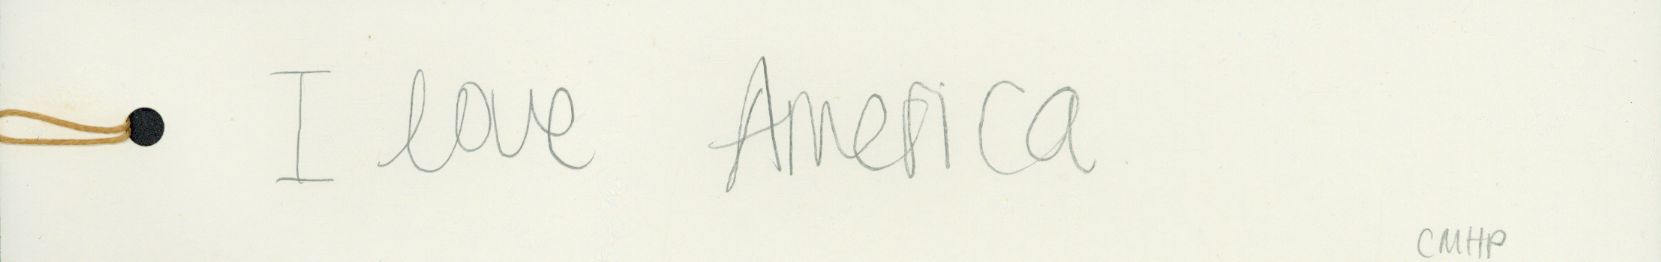 I love America
CMHP